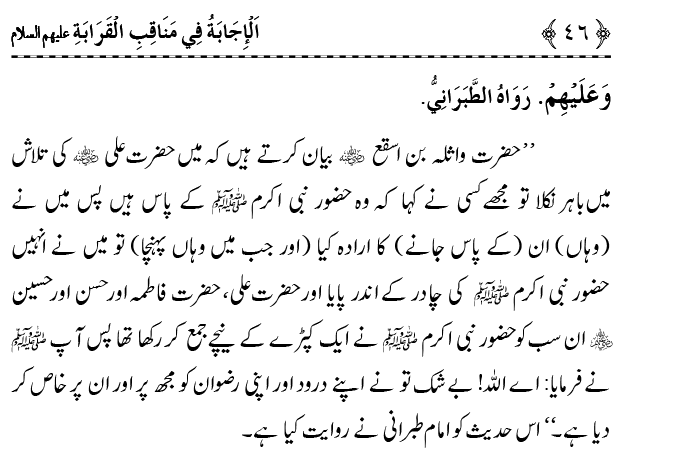 ﴿٤٦﴾ اَلْإِجَابَةُ فِي مَنَاقِبِ الْقَرَابَةِ علیہم السلام
وَعَلَيْهِمْ. رَوَاهُ الطَّبَرَانِيُّ.
’’حضرت واثلہ بن اسقع رضی اللہ عنہ بیان کرتے ہیں کہ میں حضرت علی رضی اللہ عنہ کی تلاش
میں باہر نکلا تو مجھے کسی نے کہا کہ وہ حضور نبی اکرم ﷺ کے پاس ہیں پس میں نے
(وہاں) ان (کے پاس جانے) کا ارادہ کیا (اور جب میں وہاں پہنچا) تو میں نے انہیں
حضور نبی اکرم ﷺ کی چادر کے اندر پایا اور حضرت علی، حضرت فاطمہ اور حسن اور حسین
رضی اللہ عنہم ان سب کو حضور نبی اکرم ﷺ نے ایک کپڑے کے نیچے جمع کر رکھا تھا پس آپ ﷺ
نے فرمایا: اے اللہ! بے شک تو نے اپنے درود اور اپنی رضوان کو مجھ پر اور ان پر خاص کر
دیا ہے۔‘‘ اس حدیث کو امام طبرانی نے روایت کیا ہے۔